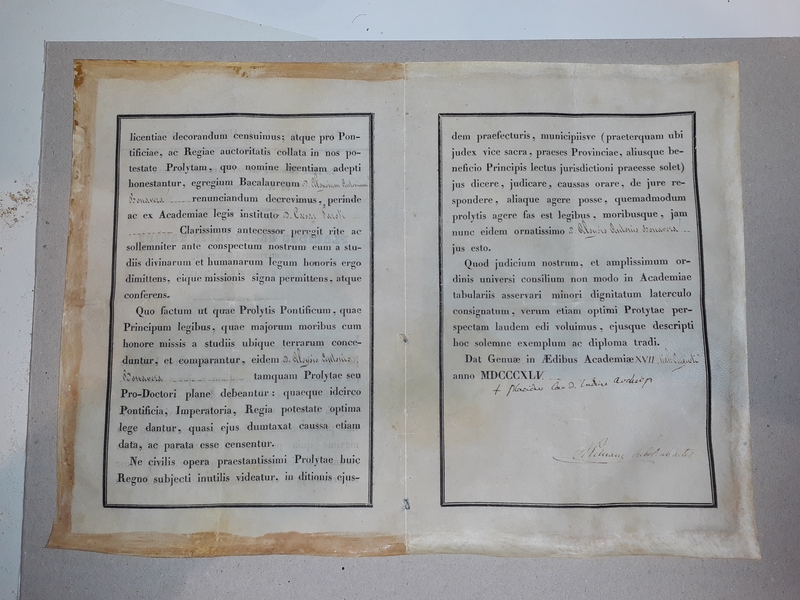 licentiae decorandum censuimus; atque pro Pon-
tificiae, ac Regiae auctoritatis collata in nos po-
testate Prolytam, quo nomine licentiam adepti
honestantur, egregium Bacalaureum D. Aloysium Antonium
Bonavera renunciandum decrevimus, perinde
ac ex Academiae legis instituto D.
Clarissimus antecessor peregit rite ac
sollemniter ante conspectum nostrum eum a stu-
diis divinarum et humanarum legum honoris ergo
dimittens, eique missionis signa permittens, atque
conferens.
Quo factum ut quae Prolytis Pontificum, quae
Principum legibus, quae majorum moribus cum
honore missis a studiis ubique terrarum conce-
duntur, et comparantur, eidem D. Aloysio Antonio
Bonavera tamquam Prolytae seu
Pro-Doctori plane debeantur: quaeque idcirco
Pontificia, Imperatoria, Regia potestate optima
lege dantur, quasi ejus dumtaxat caussa etiam
data, ac parata esse censentur.
Ne civilis opera praestantissimi Prolytae huic
Regno subjecti inutilis videatur, in ditionis ejus-
dem praefecturis, municipiisve (praeterquam ubi
judex vice sacra, praeses Provinciae, aliusque be-
neficio Principis lectus jurisdictioni praeesse solet)
jus dicere, judicare, caussas orare, de jure re-
spondere, aliaque agere posse, quemadmodum
prolytis agere fas est legibus, moribusque, jam
nunc eidem ornatissimo D. Aloysio Antonio Bonavera
jus esto.
Quod judicium nostrum, et amplissimum or-
dinis universi consilium non modo in Academiae
tabulariis asservari minori dignitatum laterculo
consignatum, verum etiam optimi Protytae per-
spectam laudem edi voluimus, ejusque descripti
hoc solemne exemplum ac diploma tradi.
Dat Genuæ in Ædibus Academiæ XVII
anno MDCCCXLV
+ Placidus